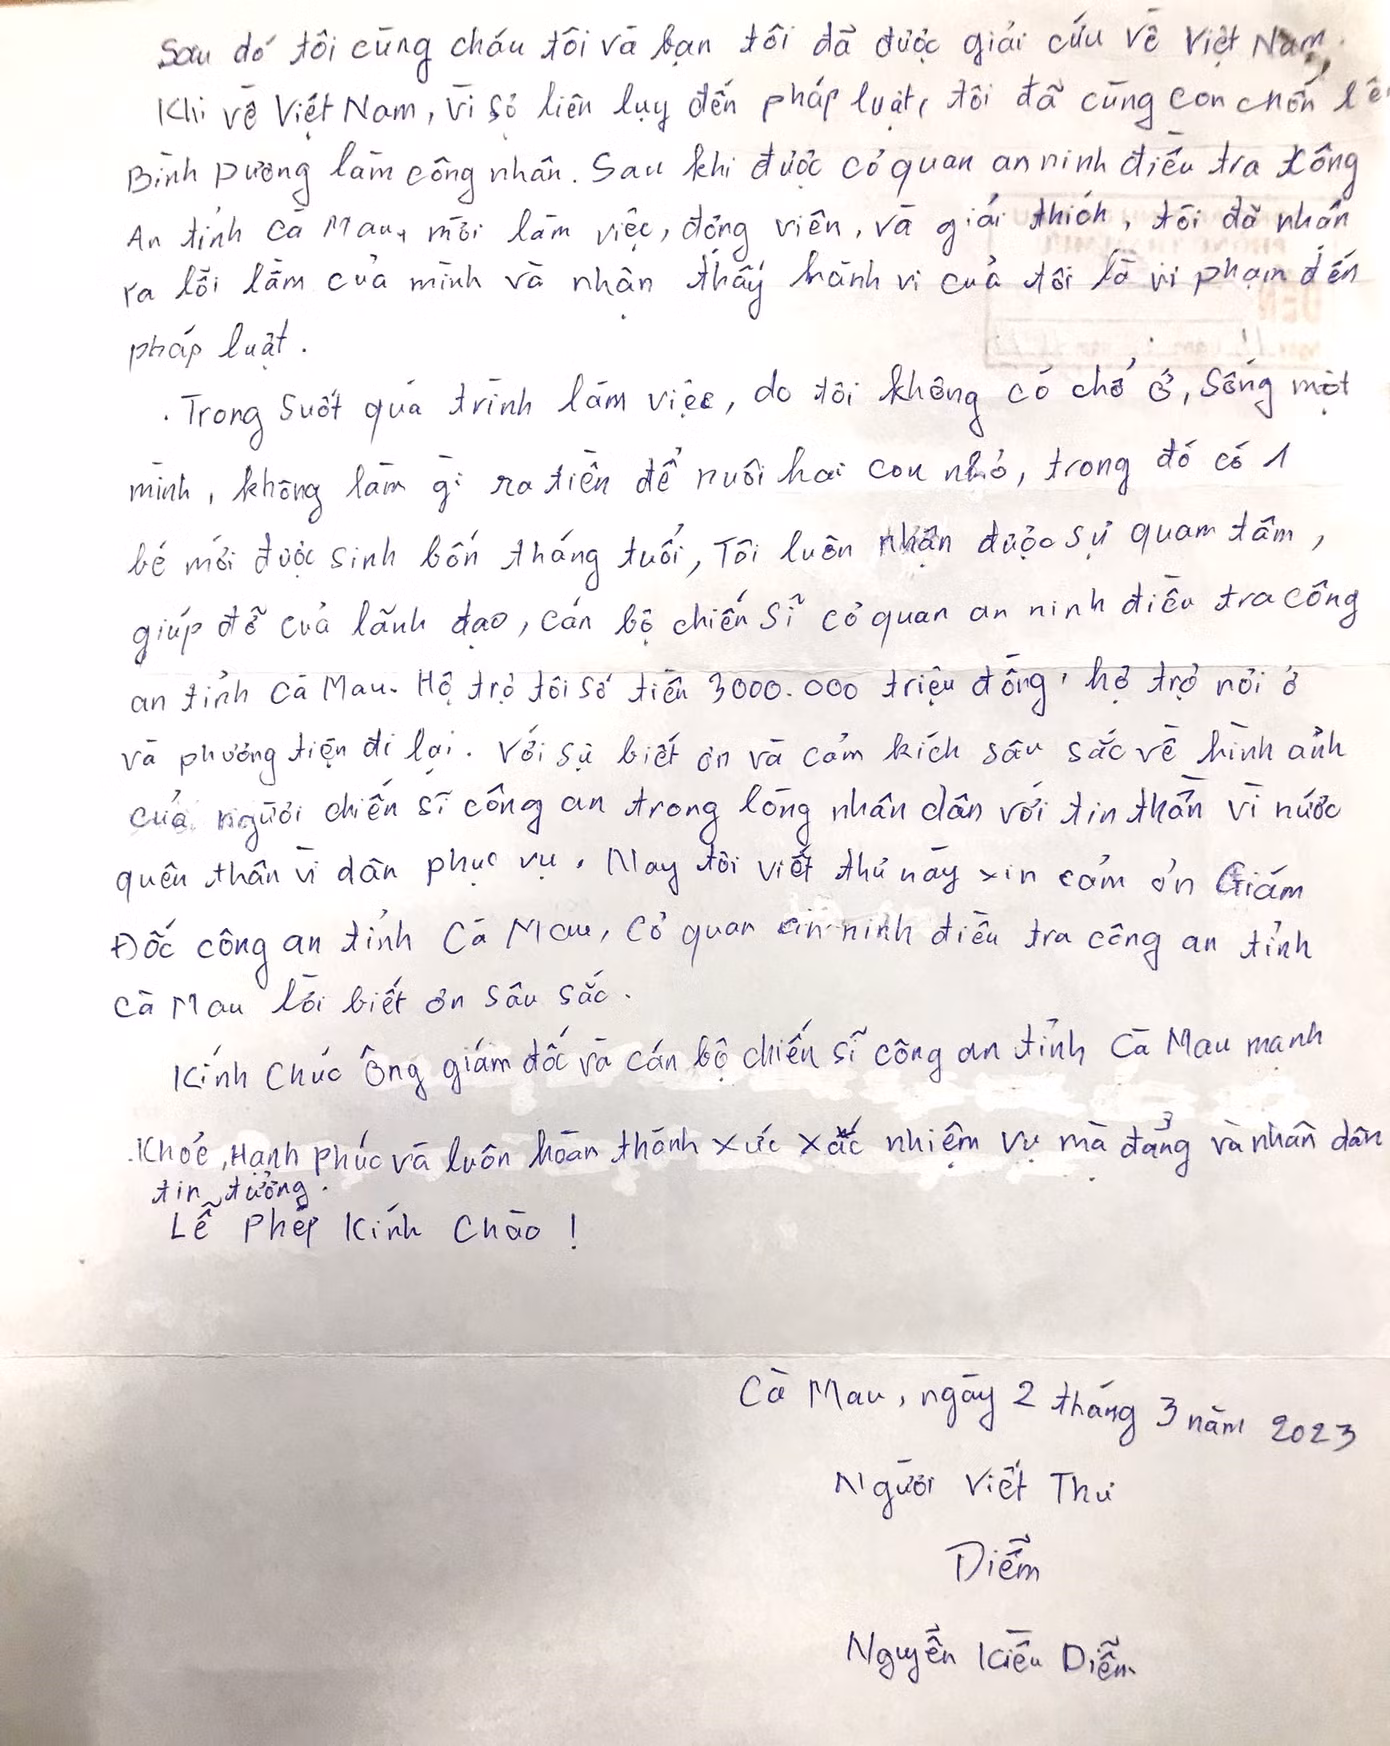 Sau đó tôi cùng cháu tôi và bạn tôi đã được giải cứu về Việt Nam.
Khi về Việt Nam, vì sợ liên lụy đến pháp luật, tôi đã cùng con chốn lên
Bình Dương làm công nhân. Sau khi được cơ quan an ninh điều tra Công
An tỉnh Cà Mau, mời làm việc, động viên, và giải thích, tôi đã nhận
ra lỗi lầm của mình và nhận thấy hành vi của tôi là vi phạm đến
pháp luật.
. Trong suốt quá trình làm việc, do tôi không có chổ ở, sống một
mình, không làm gì ra tiền để nuôi hai con nhỏ, trong đó có 1
bé mới được sinh bốn tháng tuổi, Tôi luôn nhận được sự quam tâm,
giúp đỡ của lãnh đạo, cán bộ chiến sĩ cơ quan an ninh điều tra công
an tỉnh Cà Mau. Hộ trợ tôi số tiền 3000.000 triệu đồng, hộ trợ nơi ở
và phương tiện đi lại. Với sự biết ơn và cảm kích sâu sắc về hình ảnh
của người chiến sĩ công an trong lòng nhân dân với tin thần vì nước
quên thân vì dân phục vụ. Nay tôi viết thư này xin cảm ơn Giám
Đốc công an tỉnh Cà Mau, Cơ quan an ninh điều tra công an tỉnh
Cà Mau lời biết ơn sâu sắc.
Kính Chúc Ông giám đốc và cán bộ chiến sĩ công an tỉnh Cà Mau mạnh
Khỏe, Hạnh phúc và luôn hoàn thành xức xắc nhiệm vụ mà đảng và nhân dân
tin tưởng.
Lễ Phép Kính Chào !
Cà Mau, ngày 2 tháng 3 năm 2023
Người Viết Thư
Diễm
Nguyễn Kiều Diễm